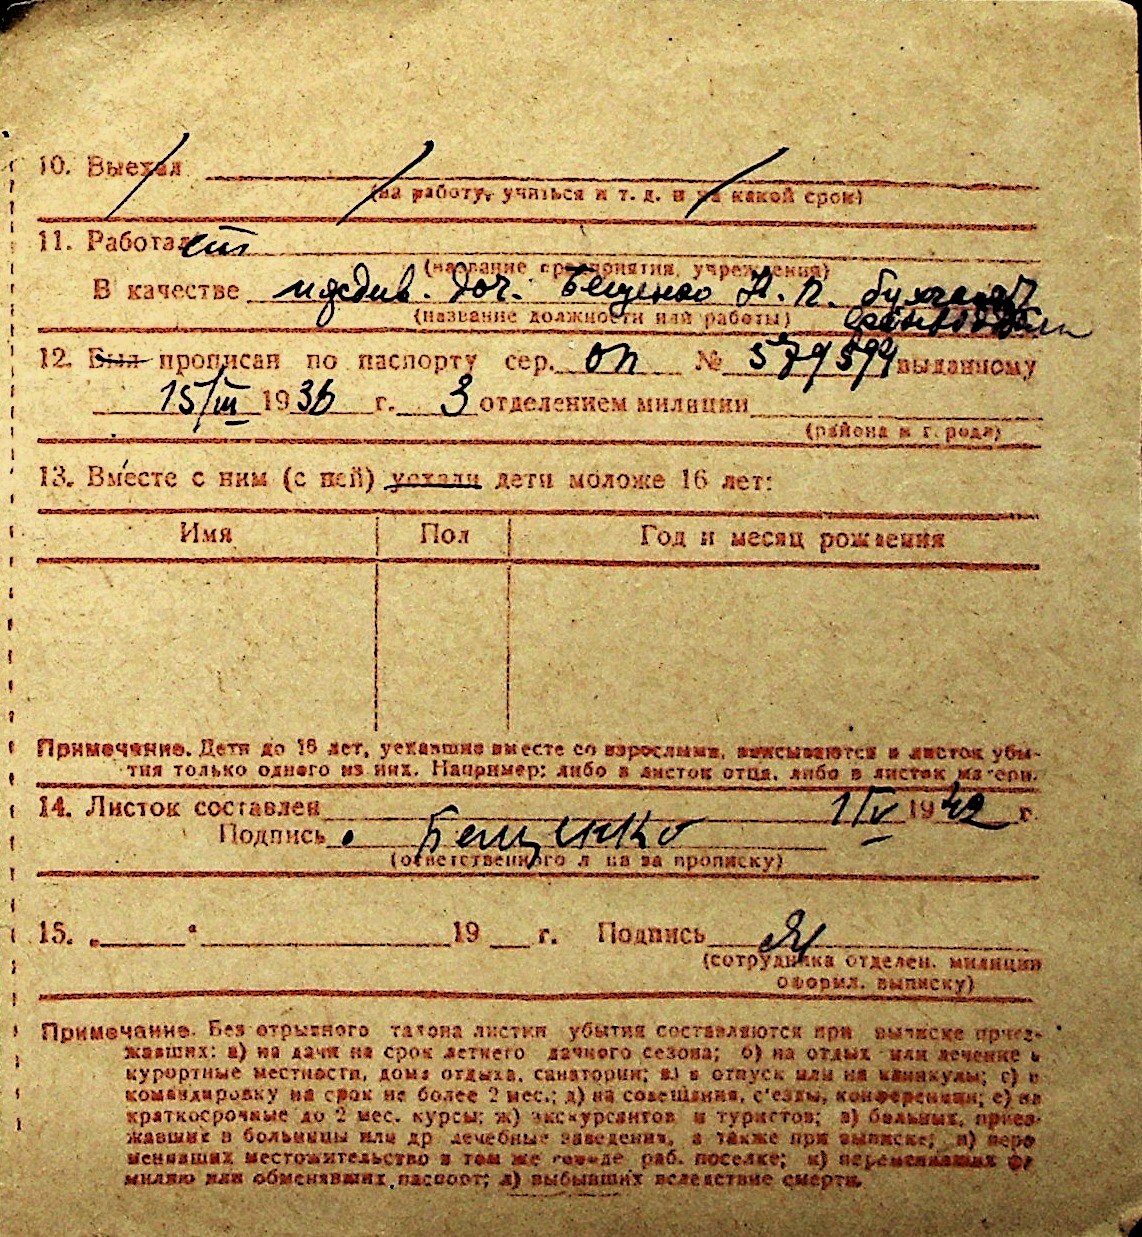 10. Выехал
(на работу, учиться и т. д. и на какой срок)
11. Работает
(название предприятия, учреждения)
В качестве иждив. доч. Бещенко Н. П. бухгалт
(название должности или работы)
12. Был прописан по паспорту сер. ОП № 579594 выданному
15/III 1936 г. 3 отделением милиции
(района и города)
13. Вместе с ним (с ней) уехали дети моложе 16 лет:
Имя Пол Год и месяц рождения
Примечание. Дети до 16 лет, уехавшие вместе со взрослыми, вписываются в листок убы-
тия только одного из них. Например: либо в листок отца, либо в листок матери.
14. Листок составлен 1/IV 1942 г.
Подпись Бещенко
(ответственного лица за прописку)
15. „ “ 19 г. Подпись
(сотрудника отделен. милиции
оформл. выписку)
Примечание. Без отрывного талона листки убытия составляются при выписке приез-
жавших: а) на дачи на срок летнего дачного сезона; б) на отдых или лечение в
курортные местности, дома отдыха, санатории; в) в отпуск или на каникулы; г) в
командировку на срок не более 2 мес.; д) на совещания, с'езды, конференции; е) на
краткосрочные до 2 мес. курсы; ж) экскурсантов и туристов; з) больных, приез-
жавших в больницы или др лечебные заведения, а также при выписке; и) пере
менивших местожительство в том же городе раб. поселке; к) переменивших фа
милию или обменявших паспорт; л) выбывших вследствие смерти.